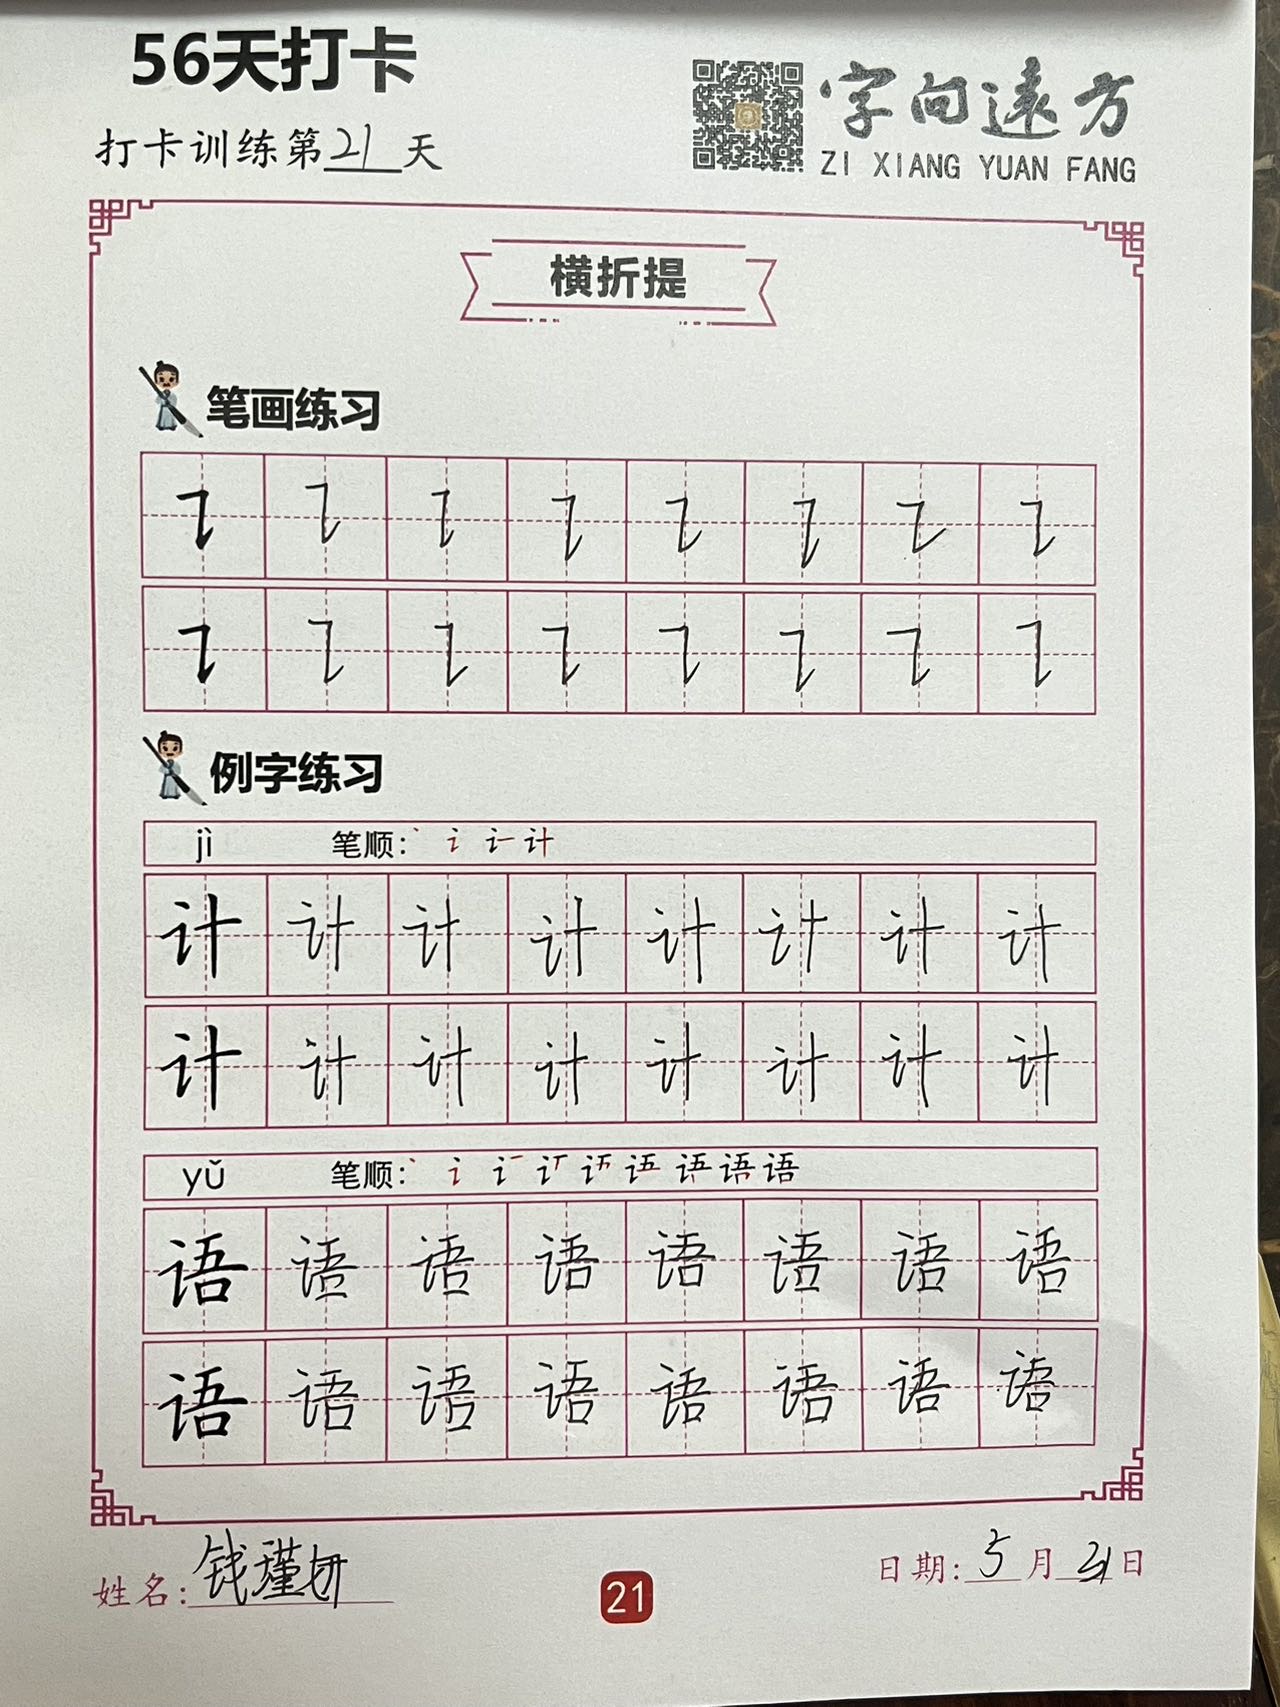 56天打卡
字向遠方
打卡训练第21天
ZI XIANG YUAN FANG
横折提
笔画练习
㇊ ㇊ ㇊ ㇊ ㇊ ㇊ ㇊ ㇊
㇊ ㇊ ㇊ ㇊ ㇊ ㇊ ㇊ ㇊
例字练习
jì 笔顺:
计 计 计 计 计 计 计 计
计 计 计 计 计 计 计 计
yǔ 笔顺:
语 语 语 语 语 语 语 语
语 语 语 语 语 语 语 语
姓名:钱瑾
日期:5月21日
21